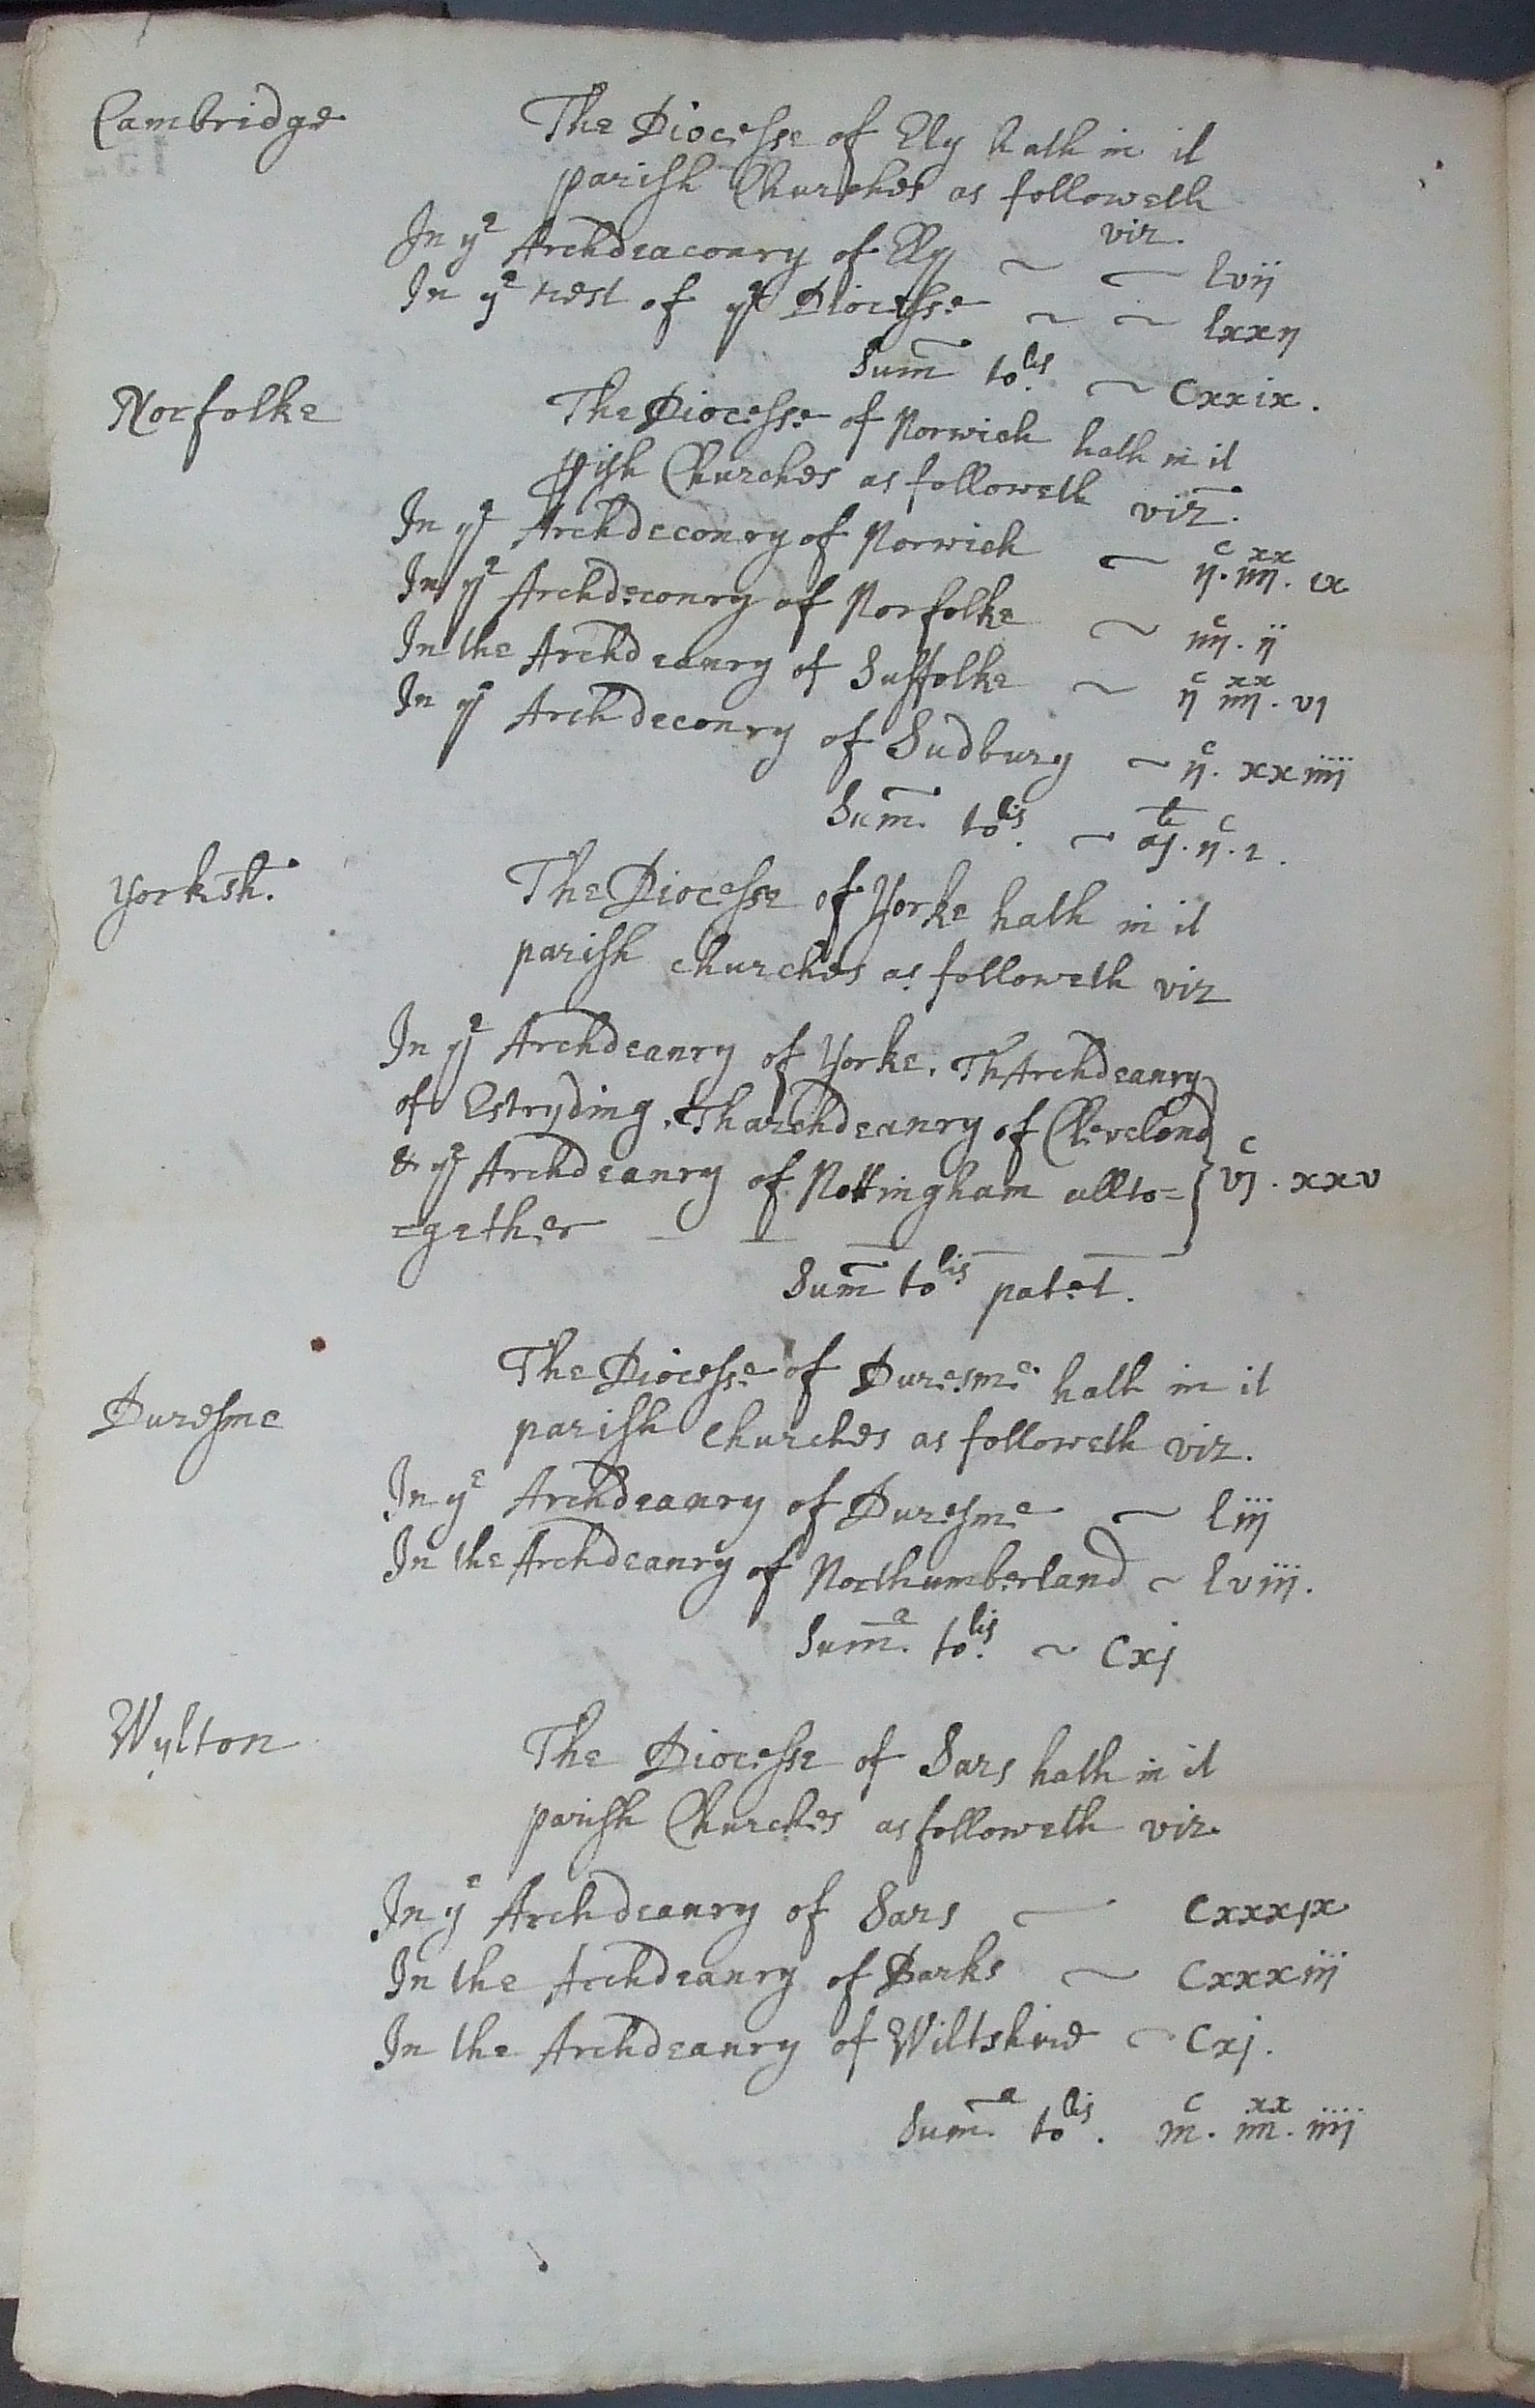 Cambridge The Diocesse of Ely hath in it
parish Churches as followeth
viz.
In yᵉ Archdeaconry of Ely ~ — lvij
In yᵉ rest of yᵉ Diocesse ~ ~ lxxij
Sum̄ toˡⁱˢ. ~ Cxxix.
Norfolke The Diocesse of Norwich hath in it
ꝑish Churches as followeth viz.
In yᵉ Archdeconry of Norwich — ijᶜ. iiijˣˣ. ix
In yᵉ Archdeconry of Norfolke ~ iiijᶜ. ij
In the Archdeanry of Suffolke ~ ijᶜ iiijˣˣ. vj
In yᵉ Archdeconry of Sudbury ~ ijᶜ. xxiiij
Sum̄. toˡⁱˢ. ~
Yorksh. The Diocesse of Yorke hath in it
parish churches as followeth viz
In yᵉ Archdeanry of Yorke. Th Archdeanry
of Estryding. Tharchdeanry of Cleveland
& yᵉ Archdeanry of Nottingham allto= } vjᶜ. xxv
=gether — —
Sum̄ toˡⁱˢ patet.
Duresme The Diocesse of Duresme hath in it
parish churches as followeth viz.
In yᵉ Archdeanry of Duresme ~ liij
In the Archdeanry of Northumberland ~ lviij.
Sum̄ᵃ. toˡⁱˢ. ~ Cxj
Wylton The Diocesse of Sars hath in it
parish Churches as followeth viz.
In yᵉ Archdeanry of Sars — Cxxxix
In the Archdeanry of Barks ~ Cxxxiij
In the Archdeanry of Wiltshire ~ Cxj.
Sum̄ᵃ. toˡⁱˢ. iijᶜ. iiijˣˣ. iiij